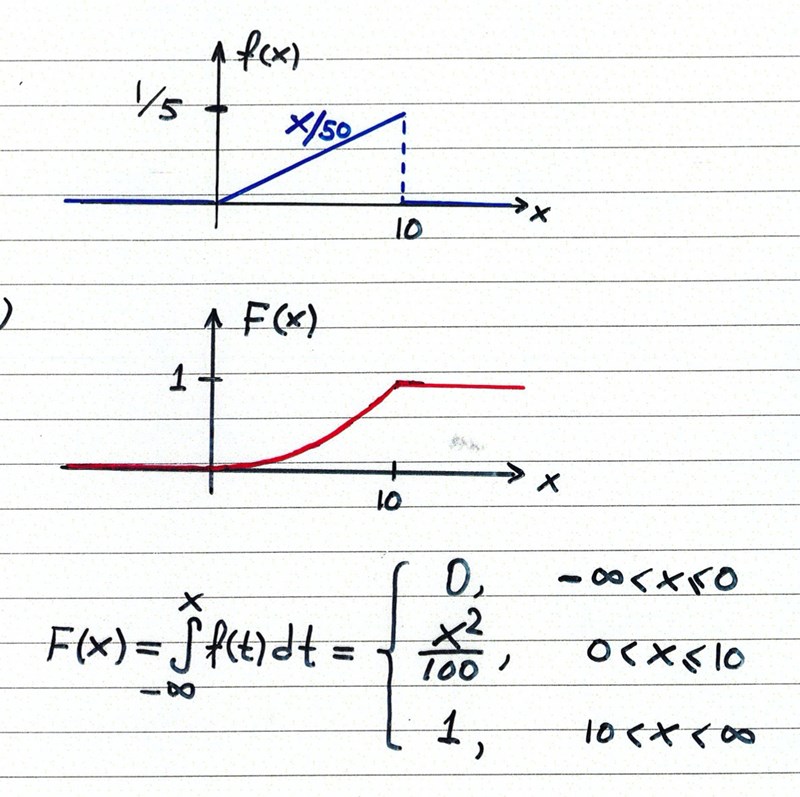 f(x)
1/5
x/50
x
10
)
F(x)
1
10
x
F(x) = ∫_{-∞}^{x} f(t) dt = { 0, -∞ < x ⩽ 0
x²/100, 0 < x ⩽ 10
1, 10 < x < ∞